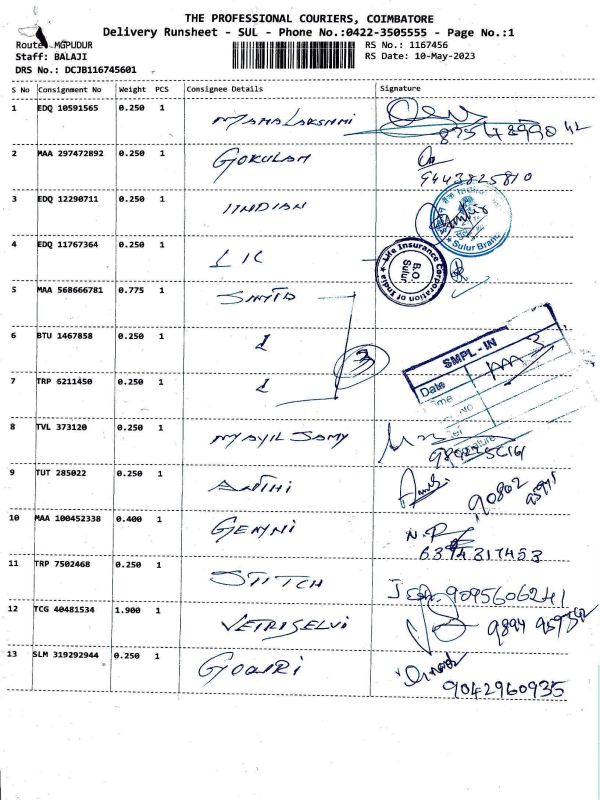 THE PROFESSIONAL COURIERS, COIMBATORE
Delivery Runsheet - SUL - Phone No.:0422-3505555 - Page No.:1
Route: MGPUDUR RS No.: 1167456
Staff: BALAJI RS Date: 10-May-2023
DRS No.: DCJB116745601
S No Consignment No Weight PCS Consignee Details Signature
1 EDQ 10591565 0.250 1 MAHALAKSHMI
2 MAA 297472892 0.250 1 GOKULAM
9443825810
3 EDQ 12290711 0.250 1 IINDIAN
Sulur Branch
4 EDQ 11767364 0.250 1 LIC
Life Insurance Corporation of India
B.O.
Sulur
5 MAA 568666781 0.775 1
6 BTU 1467858 0.250 1 1
3
SMPL - IN
7 TRP 6211450 0.250 1 1
Date
8 TVL 373120 0.250 1 MYAYIL SAMY
9 TUT 285022 0.250 1 ANTHI
10 MAA 100452338 0.400 1 GEMYNI
6374317453
11 TRP 7502468 0.250 1 STITCH
9095606241
12 TCG 40481534 1.900 1 VETRISELVI
13 SLM 319292944 0.250 1 GOWRI
9042960935